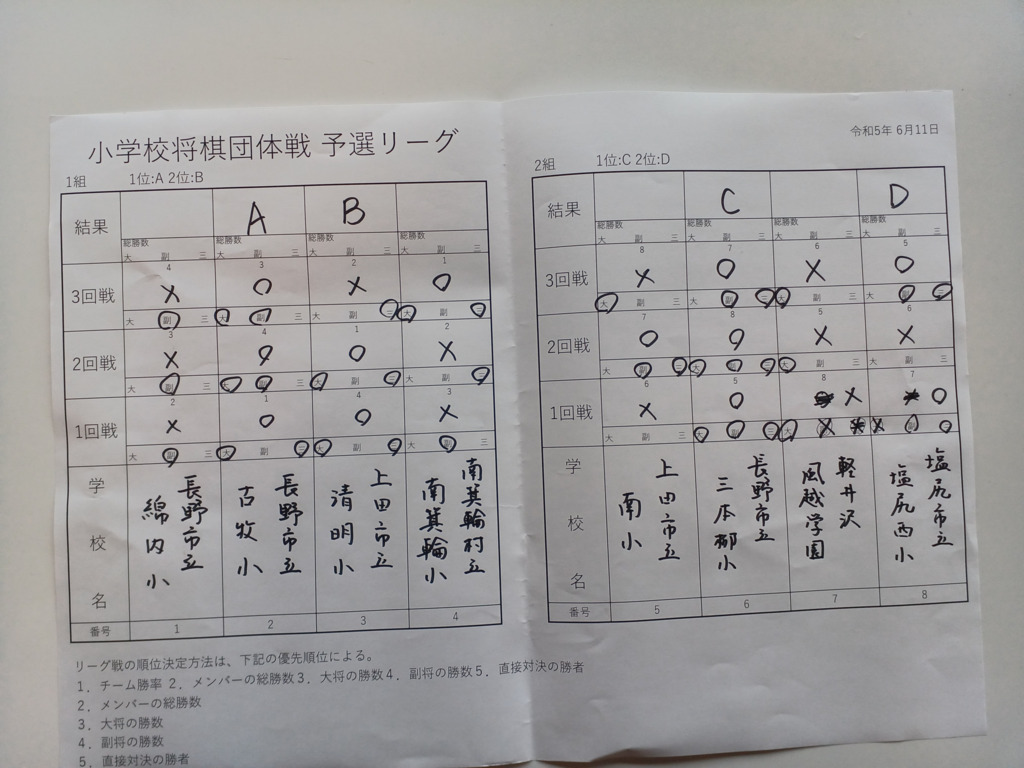 小学校将棋団体戦 予選リーグ
1組 1位:A 2位:B
結果 A B
総勝数 総勝数 総勝数 総勝数
大 副 三 大 副 三 大 副 三 大 副 三
4 3 2 1
3回戦 × ○ × ○
大 副 三 大 副 三 大 副 三 大 副 三
3 4 1 2
2回戦 × ○ ○ ×
大 副 三 大 副 三 大 副 三 大 副 三
2 1 4 3
1回戦 × ○ ○ ×
大 副 三 大 副 三 大 副 三 大 副 三
学校名
長野市立
綿内小
長野市立
古牧小
上田市立
清明小
南箕輪村立
南箕輪小
番号 1 2 3 4
リーグ戦の順位決定方法は、下記の優先順位による。
1．チーム勝率 2．メンバーの総勝数3．大将の勝数4．副将の勝数5．直接対決の勝者
2．メンバーの総勝数
3．大将の勝数
4．副将の勝数
5．直接対決の勝者
令和5年 6月11日
2組 1位:C 2位:D
結果 C D
総勝数 総勝数 総勝数 総勝数
大 副 三 大 副 三 大 副 三 大 副 三
8 7 6 5
3回戦 × ○ × ○
大 副 三 大 副 三 大 副 三 大 副 三
7 8 5 6
2回戦 ○ ○ × ×
大 副 三 大 副 三 大 副 三 大 副 三
6 5 8 7
1回戦 × ○ × ○
大 副 三
学校名
上田市立
南小
長野市立
三本柳小
軽井沢
風越学園
塩尻市立
塩尻西小
番号 5 6 7 8